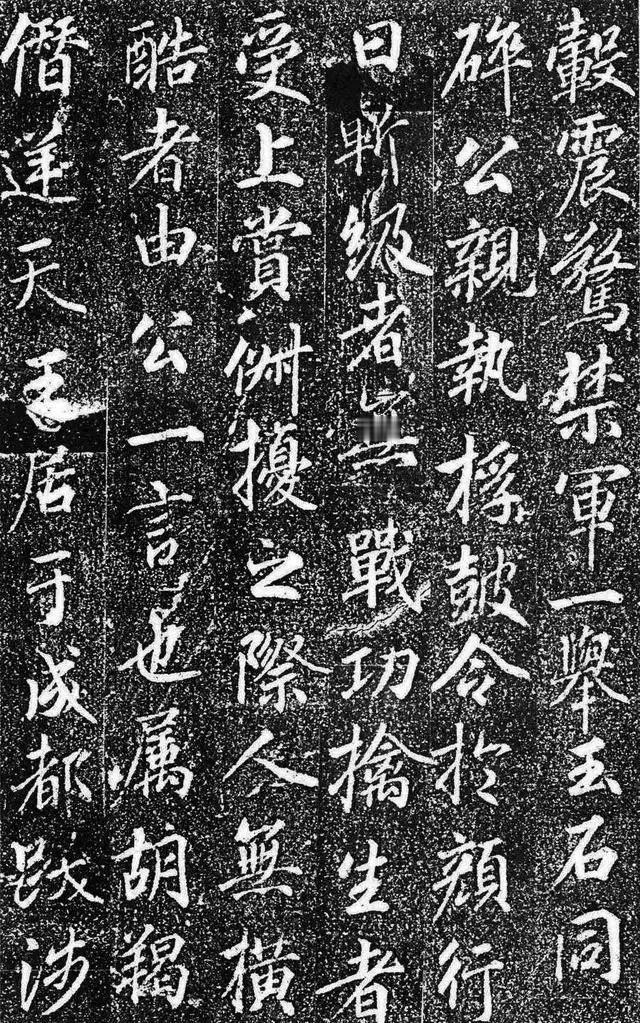 轂震驚禁軍一舉玉石同
碎公親執桴鼓令於顔行
曰斬級者無戰功擒生者
受上賞俶擾之際人無橫
酷者由公一言也属胡羯
僭逆天王居于成都跋涉